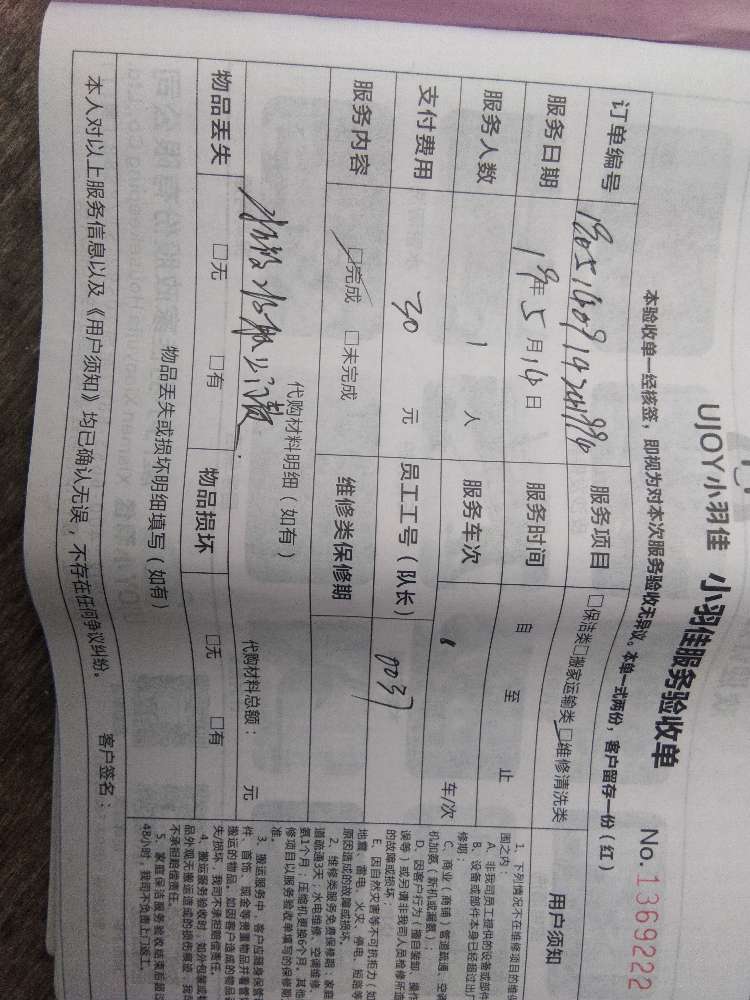 UJOY小羽佳 小羽佳服务验收单
No.1369222
本验收单一经核签，即视为对本次服务验收无异议。本单一式两份，客户留存一份（红）
订单编号
服务项目 □保洁类□搬家运输类 □维修清洗类
服务日期 19年5月16日 服务时间 自 至 止
服务人数 1 人 服务车次 车/次
支付费用 30 元 员工工号（队长） 0037
服务内容 □完成 □未完成 维修类保修期
代购材料明细（如有）
代购材料总额： 元
物品丢失 □无 □有 物品损坏 □无 □有
物品丢失或损坏明细填写（如有）
本人对以上服务信息以及《用户须知》均已确认无误，不存在任何争议纠纷。
客户签名：
用户须知
1、下列情况不在维修项目的维
围之内
A、非我司员工提供的设备或部件
B、设备或部件本身已经超过出厂
修期；
C、商业（商铺）管道疏通、空调
机加氨（新机或漏氨）；
D、因客户行为（擅自装卸、操作
误等）或另请非我司人员检修所造
的故障或损坏；
E、因自然灾害等不可抗拒力（如
地震、雷电、火灾、停电、短路等
原因造成的故障或损坏。
2、维修类服务免费保修期：家庭
道疏通3天；水电维修、空调维修、
氨1个月；压缩机更换6个月。其他
修项目以服务验收单填写的保修期
准。
3、搬运服务中，客户应随身保管
件、首饰、现金等贵重物品并看管
搬运的物品。如因客户造成的物品
失/损坏，我司不承担赔偿责任。
4、搬运服务验收时，如外包装或
品外观无搬运造成的损伤痕迹，我司
不承担赔偿责任。
5、家庭保洁服务验收结束后超过
48小时，我司不负责上门返工。